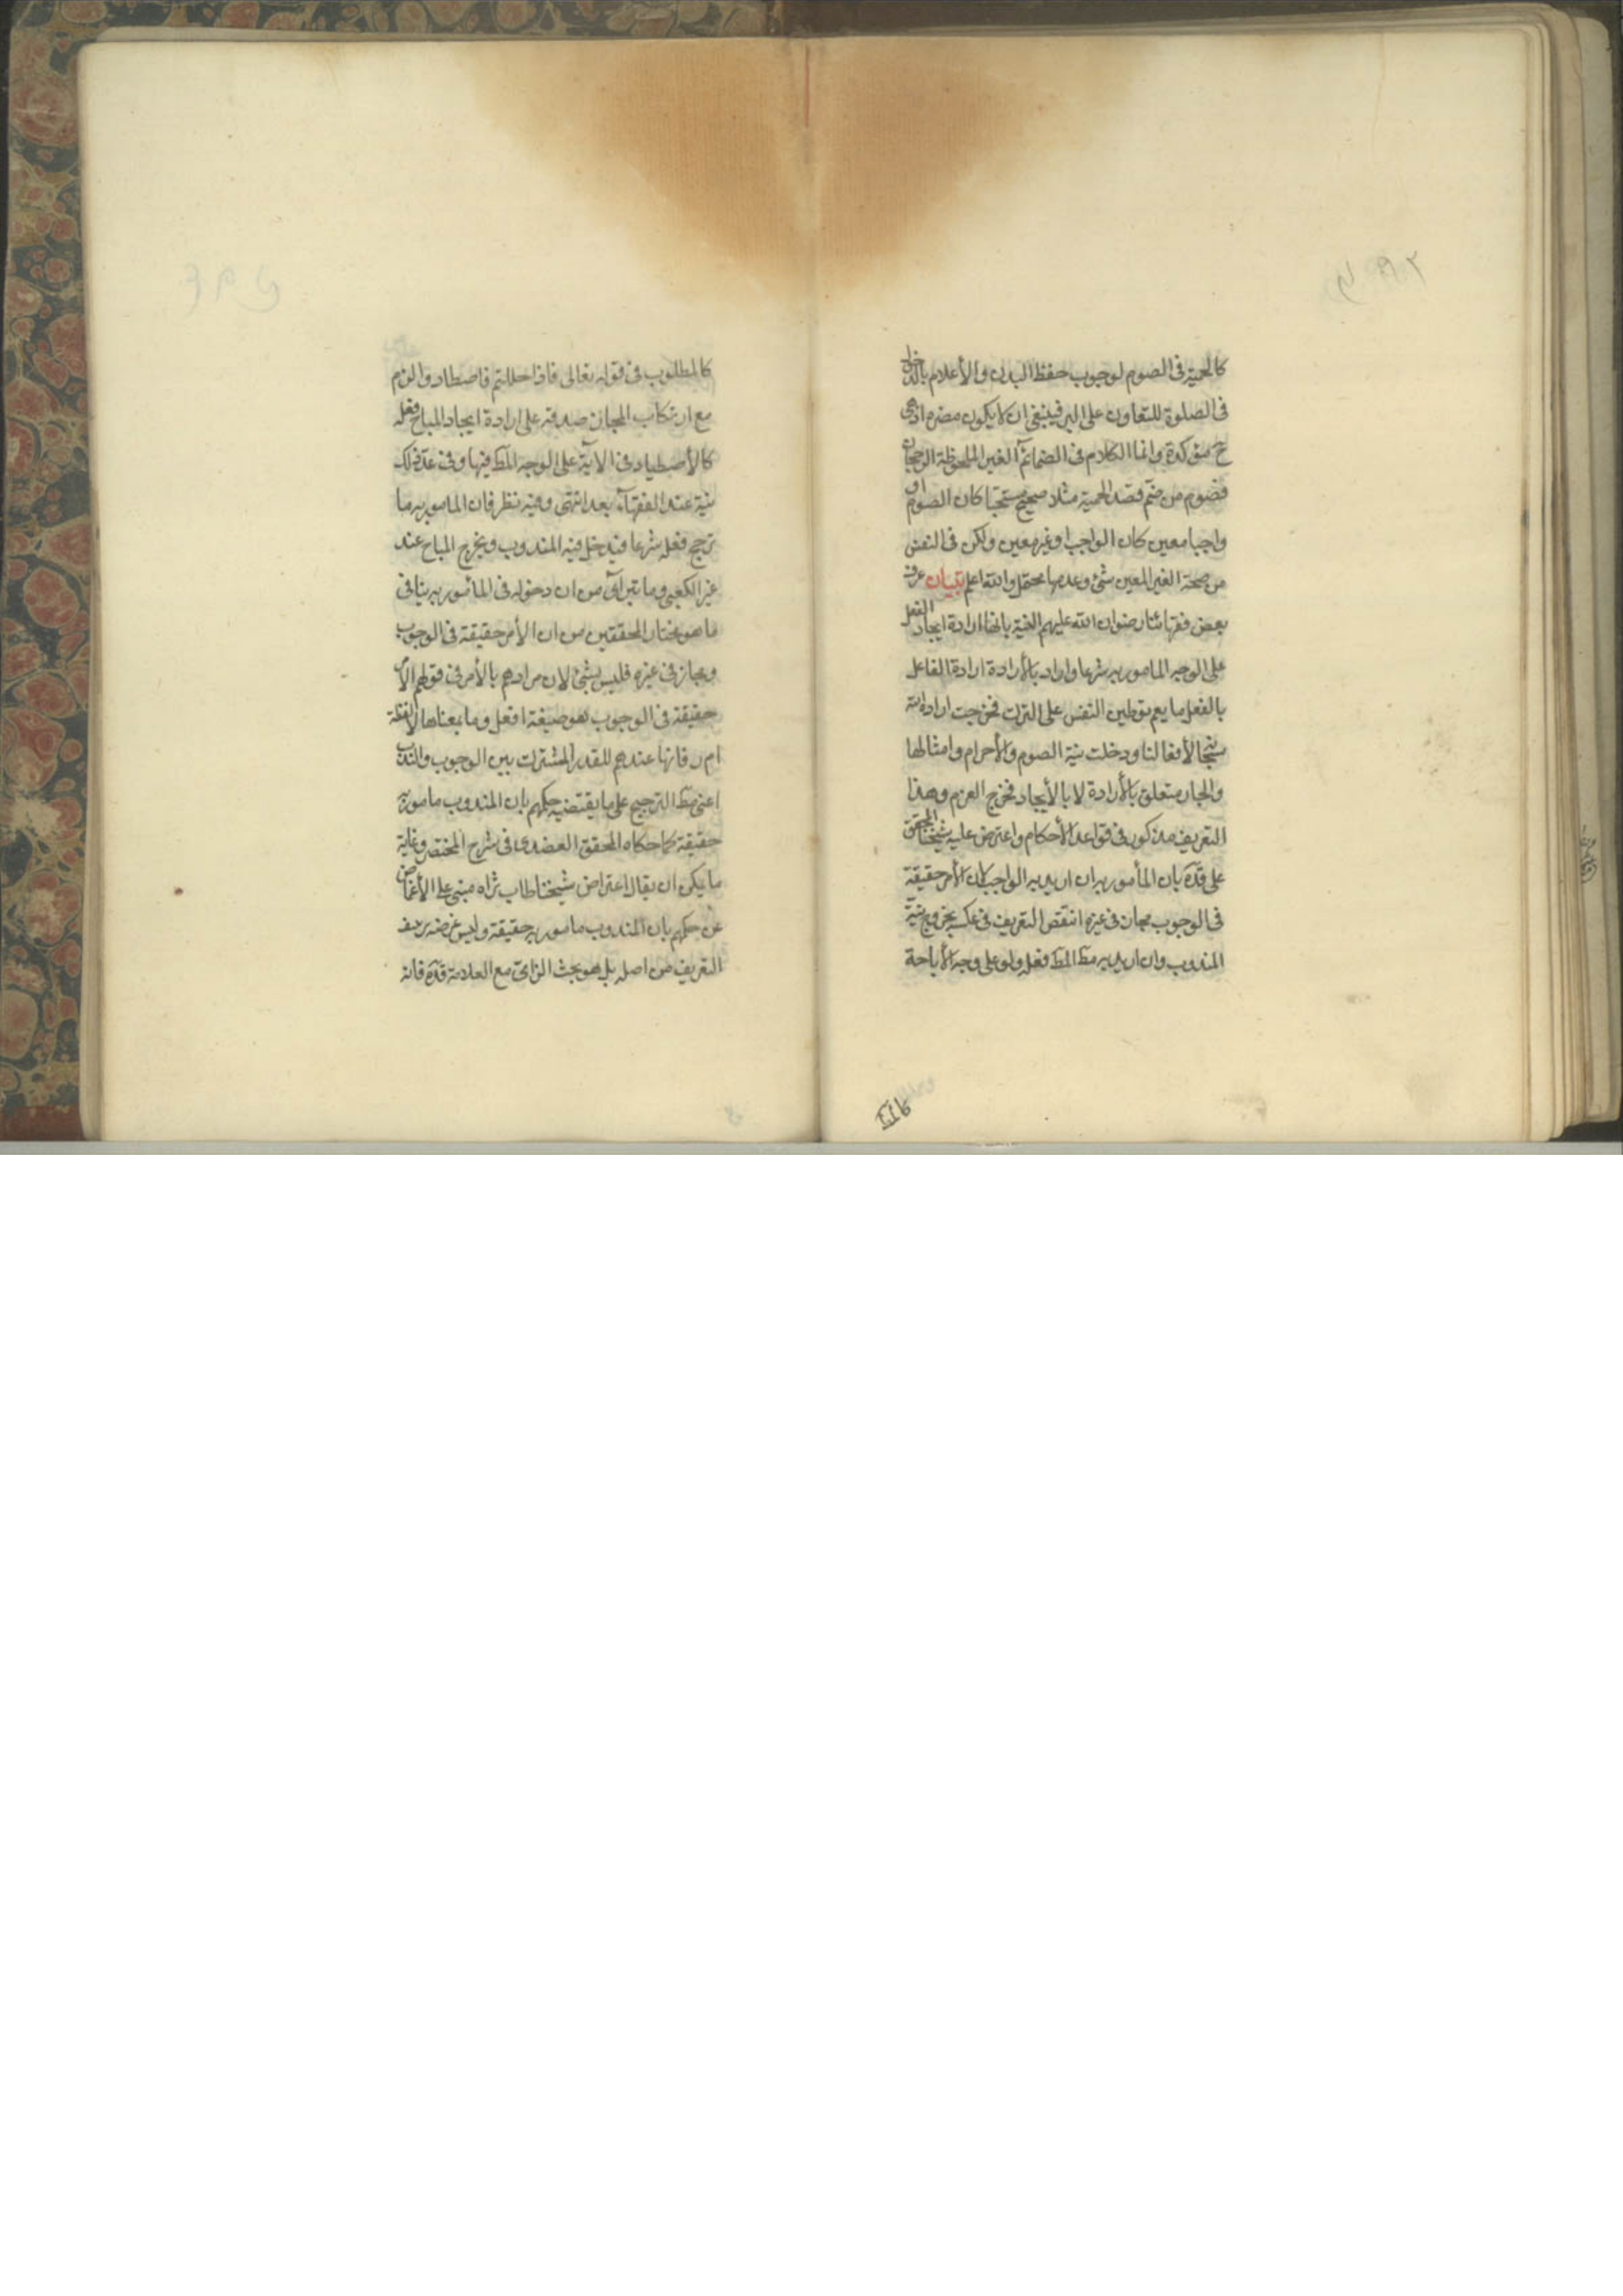 كالحمية فى الصوم لوجوب حفظ البدن والأعلام بالدخول
فى الصلوة للتعاون على البر فينبغى ان لا يكون مضرة اذ هى
ح مؤكدة وانما الكلام فى الضمائم الغير الملحوظة الرجحان
فصوم من ضم قصد الحمية مثلا صحيح مستحبا كان الصوم او
واجبا معين كان الواجب او غير معين ولكن فى النفس
من صحة الغير المعين شئ وعدمها محتمل والله اعلم تبيان عرف
بعض فقهائنا رضوان الله عليهم النية بانها ارادة ايجاد الفعل
على الوجه المامور به شرعا واراد بالأرادة ارادة الفاعل
بالفعل ما يعم توطين النفس على الترك فخرجت ارادة الله
سبحانه لأفعالنا ودخلت نية الصوم والأحرام وامثالها
والجار متعلق بالأرادة لا بالأيجاد فخرج العزم وهذا
التعريف مذكور فى قواعد الأحكام واعترض عليه شيخنا المحقق
على قده بان المأمور به ان اريد به الواجب لان الأمر حقيقة
فى الوجوب مجاز فى غيره انتقض التعريف فى عكسه بخروج نية
المندوب وان اريد به مط المط فعله ولو على وجه الأباحة
كالمط
كالمطلوب فى قوله تعالى فاذا حللتم فاصطادوا لزم
مع ارتكاب المجاز صدقه على ارادة ايجاد المباح فعله
كالأصطياد فى الآية على الوجه المط فيها وفى عد ذلك
نية عند الفقهاء بعد انتهى وفيه نظر فان المامور به ما
ترجح فعله شرعا فيدخل فيه المندوب ويخرج المباح عند
غير الكعبى وما يتراءى من ان دخوله فى المأمور به ينافى
ما هو مختار المحققين من ان الأمر حقيقة فى الوجوب
ومجاز فى غيره فليس بشئ لان مرادهم بالأمر فى قولهم الأمر
حقيقة فى الوجوب هو صيغة افعل وما بمعناها لا لفظة
ام ر فانها عندهم للقدر المشترك بين الوجوب والندب
اعنى مط الترجيح على ما يقتضيه حكمهم بان المندوب مامور به
حقيقة كما حكاه المحقق العضدى فى شرح المختصر وغاية
ما يمكن ان يقال اعتراض شيخنا طاب ثراه مبنى على الأغماض
عن حكمهم بان المندوب مامور به حقيقة وليس غرضه تزييف
التعريف من اصله بل هو بحث الزامى مع العلامة قده فانه